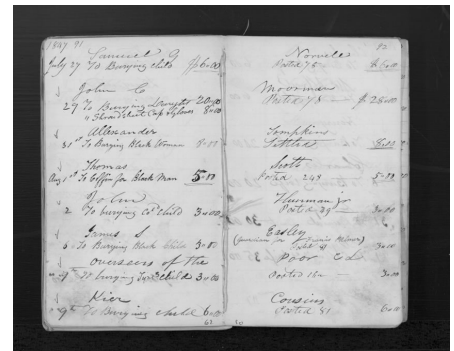 1857 91
Samuel G
July 27 To Burying child $6.00
John C
29 To Burying Daughter 20.00
" Shroud sheet Cap & Gloves 8.00
Allexander
31st To Burying Black Women 8.00
Thomas
Aug 1st To Coffin for Black Man 5.00
John
2 To burying Cd child 3.00
James S
6 To Burying Black Child 3.00
overseers of the
9th To burying child 3.00
Kier
9th To Burying child 6.00
92
Norvele
Posted 75 $6.00
Moorman
Posted 78 $28.00
Tompkins
Settled 8.00
Scott
Posted 248 5.00
Thurman jr
Posted 39 3.00
Easley
3.00
Poor C L
Posted 162 3.00
Cousins
Posted 81 6.00